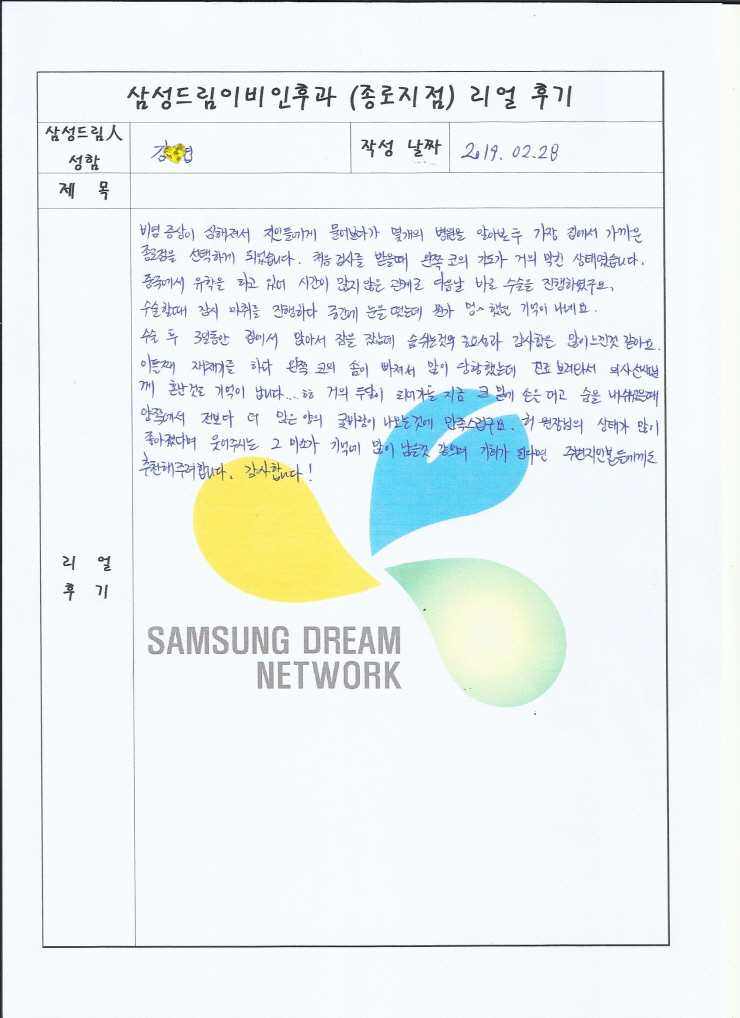 삼성드림이비인후과 (종로지점) 리얼 후기
삼성드림人 성함
작성 날짜 2019. 02. 28
제 목
리 얼 후 기
비염 증상이 심해져서 지인들에게 물어보다가 몇개의 병원을 알아본 후 가장 집에서 가까운
종로점을 선택하게 되었습니다. 처음 검사를 받을때 왼쪽 코의 기도가 거의 막힌 상태였습니다.
중국에서 유학을 하고 있어 시간이 많지 않은 관계로 다음날 바로 수술을 진행하였구요,
수술할때 잠시 마취를 진행하다 중간에 눈을 떴는데 뭔가 멍~ 했던 기억이 나네요.
수술 후 3일동안 집에서 앉아서 잠을 잤는데 숨쉬는것의 중요성과 감사함을 많이느낀것 같아요.
이틀째 재채기를 하다 왼쪽 코의 솜이 빠져서 많이 당황했는데 진료 보러와서 의사선생님
께 혼난것도 기억이 납니다....ㅎㅎ 거의 두달이 되어가는 지금 코 밑에 손은 대고 숨을 내쉬었을때
양쪽에서 전보다 더 많은 양의 콧바람이 나오는것에 만족스럽구요. 허 원장님의 상태가 많이
좋아졌다며 웃어주시는 그 미소가 기억에 많이 남을것 같으며 기회가 된다면 주변지인분들에게도
추천해주려합니다. 감사합니다!
SAMSUNG DREAM
NETWORK